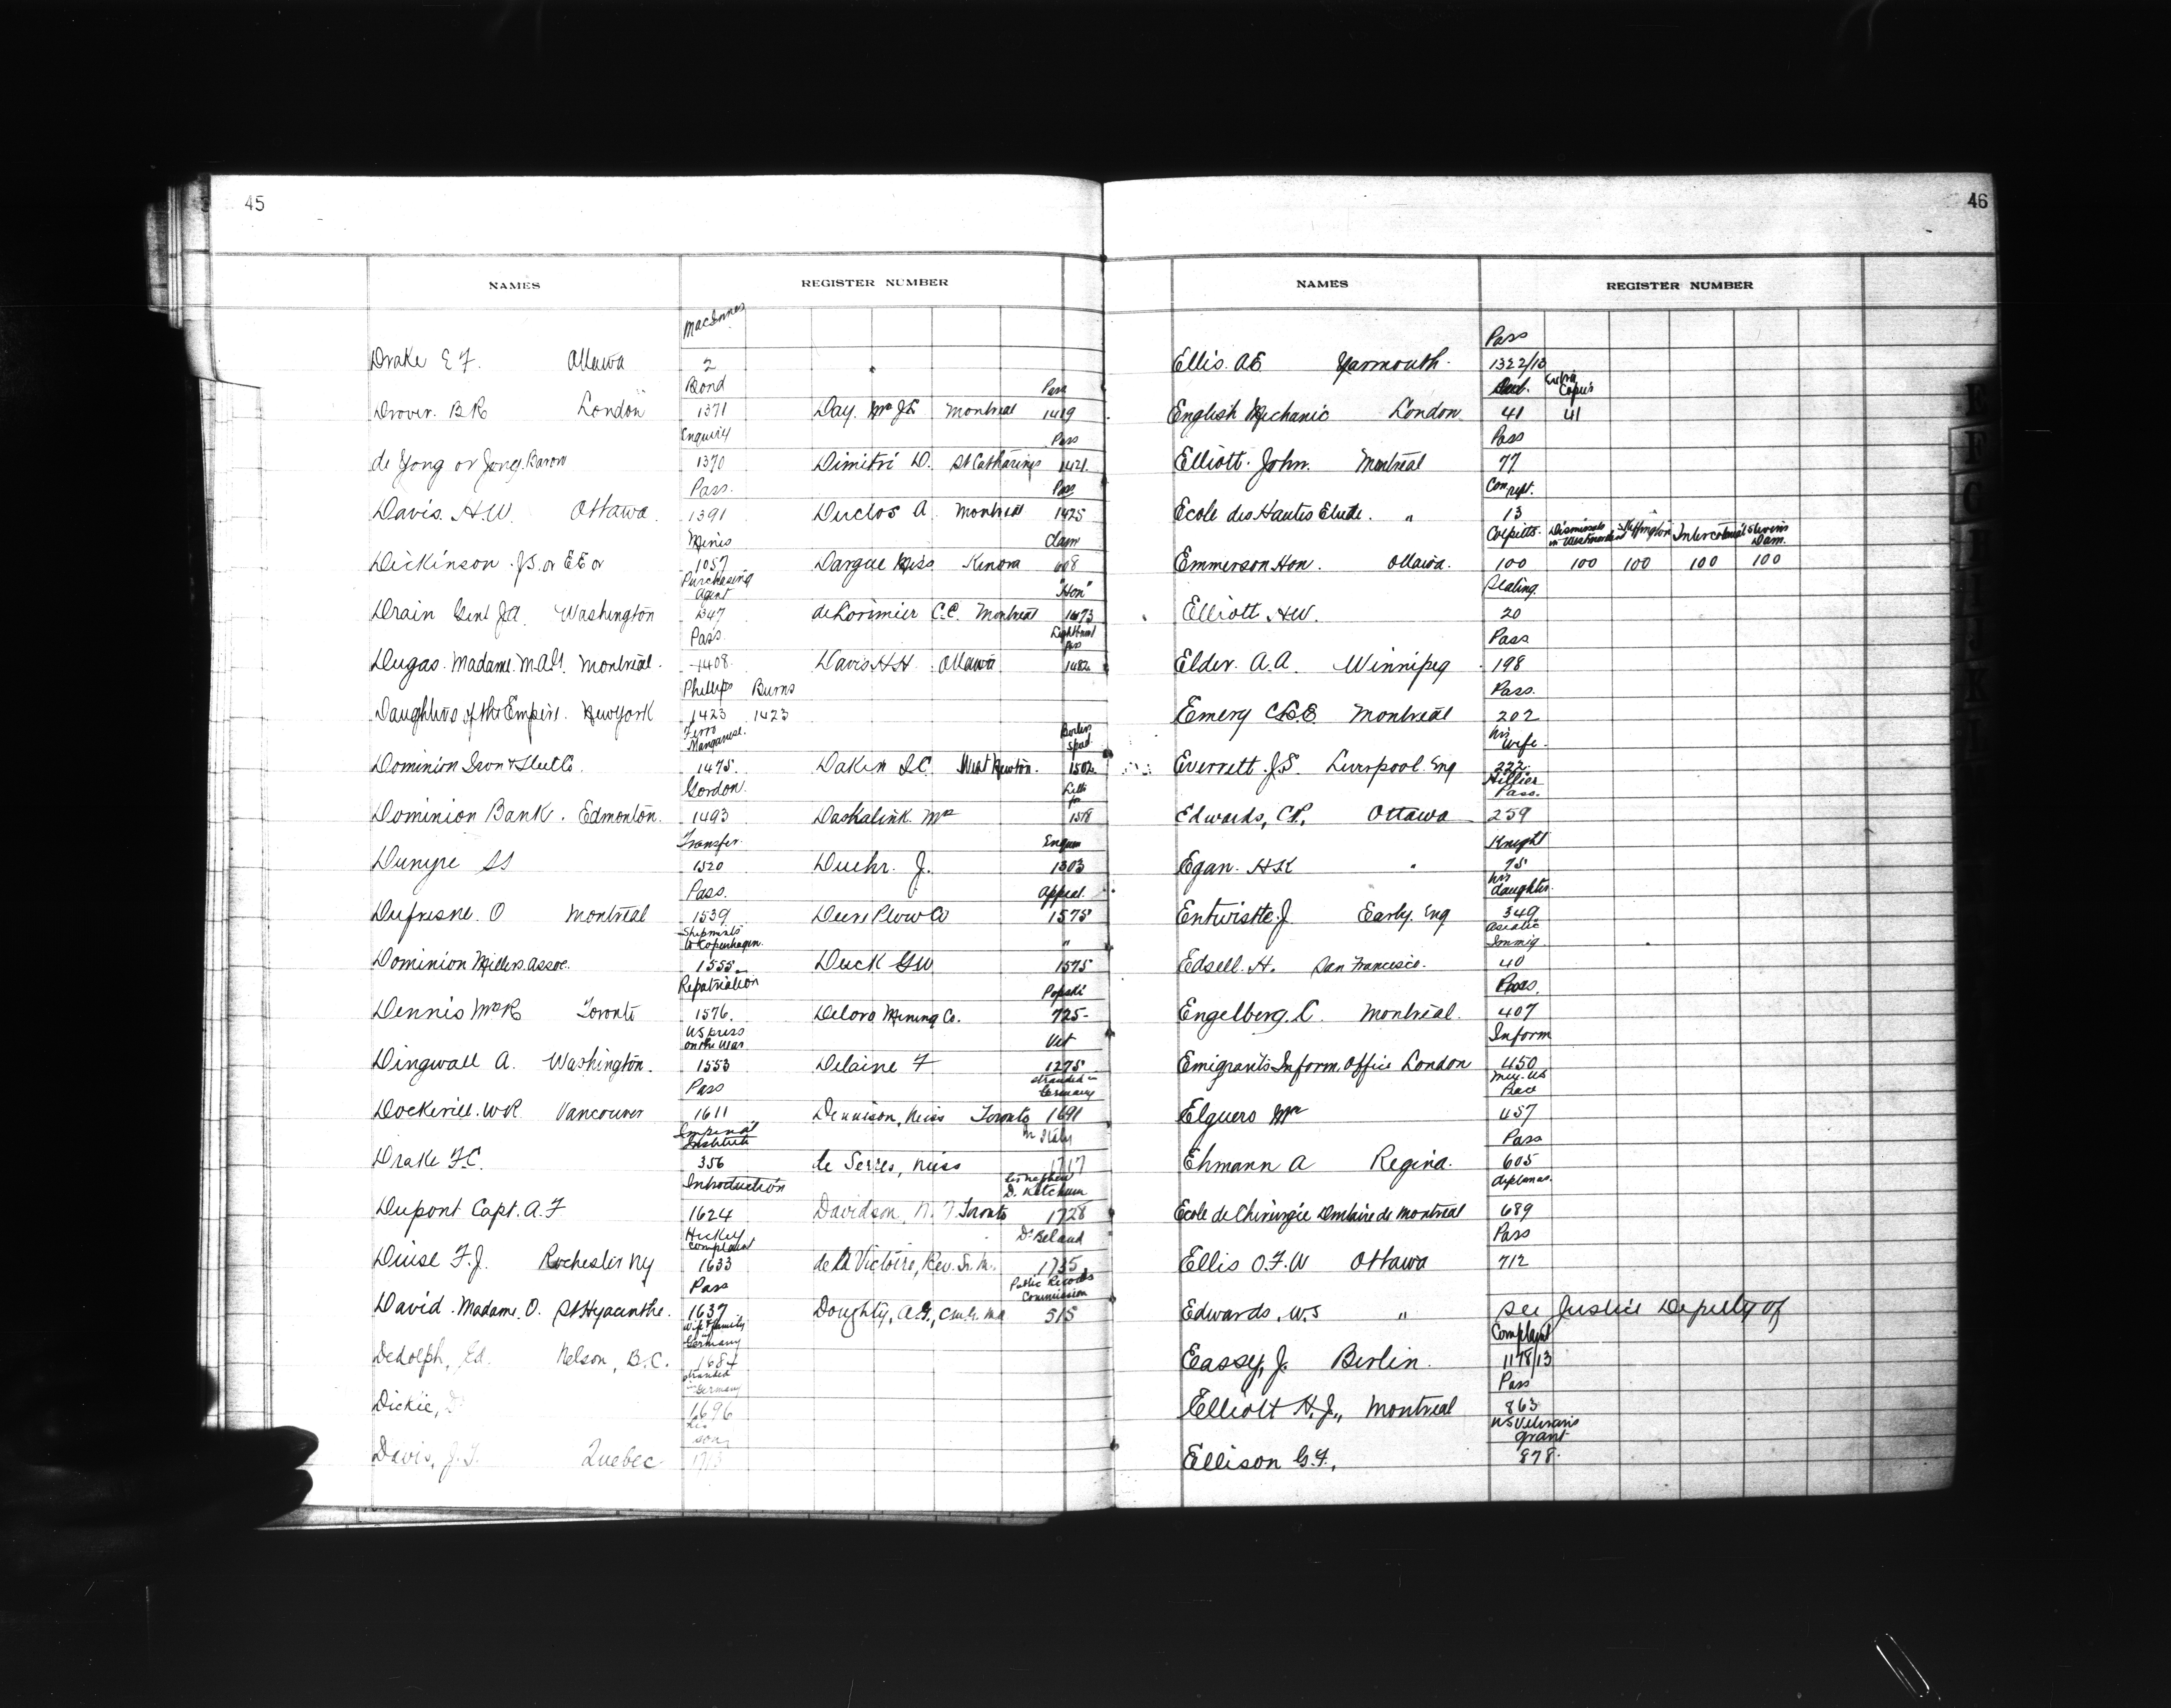 45
NAMES REGISTER NUMBER
MacInnes
Drake E F. Ottawa 2
Bond Pass
Drover. B R London 1371 Day. Mrs J E Montreal 1419
Enquiry Pass
de Yong or Jong. Baron 1370 Dimitri D. St Catharines 1421
Pass. Pass
Davis. H.W. Ottawa. 1391 Duclos A. Montreal 1425
Mines Claim
Dickinson. J S. or E E or 1057 Dargue Miss Kenora 608
Purchasing Agent "Hon"
Drain Genl J A. Washington 1347 de Lorimier C.C. Montreal 1473
Pass.
Dugas. Madame. Montreal. 1408 Davis H H. Ottawa 1482
Phillips Burns
Daughters of the Empire. New York 1423 1423
Ferro Manganese.
Dominion Iron & Steel Co. 1475. Dakin S C. West Newton. 1502
Gordon.
Dominion Bank. Edmonton. 1493 Daskalink Mr 1518
Transfer.
1520 Duehr. J. 1303
Pass. Appeal
Dufresne. O Montreal 1539 Deere Plow Co 1575
Shipments to Copenhagen. "
Dominion Millers Assoc. 1555 Duck G W 1575
Repatriation
Dennis Mrs R Toronto 1576. Deloro Mining Co. 725
US press on the War
Dingwall A. Washington. 1553 Delaine F 1275
Pass stranded in Germany
Dockerill. W R. Vancouver 1611 Dennison, Miss Toronto 1691
Imperial Institute in Italy
Drake F C. 356 de Serres, Miss 1717
Introduction D. Ketchum
Dupont Capt. A. F 1624 Davidson, Toronto 1728
Hickey complaint Dr Beland
F. J. Rochester NY 1633 de la Victoire, Rev. Sr. M. 1735
Pass Public Records Commission
David. Madame. O. St Hyacinthe. 1637 Doughty, A. G., C.M.G. 515
wife & family in Germany
Dedolph, Ed. Nelson, B.C. 1684
stranded in Germany
Dickie, 1696
his son
Davis, J. Quebec
46
NAMES REGISTER NUMBER
Pass
Ellis. A E Yarmouth. 1322/13
Extra Copies
English Mechanic London 41 41
Pass
Elliott. John. Montreal 77
Ecole des Hautes Etude. " 13
Colpitts. Dismissals in Westmorland Intercolonial Stevens Dam.
Emmerson Hon. Ottawa. 100 100 100 100 100
Sealing.
Elliott. H W. 20
Pass
Elder. A. A. Winnipeg 198
Pass.
Emery Montreal 202
his wife.
Everrett. J. S. Liverpool. Eng 222
Hillier Pass.
Edwards, C P. Ottawa 259
Knight
Egan. H K " 75
his daughter.
Entwistle. J Early. Eng 349
Asiatic Immig
Edsell. H. San Francisco. 40
Pass.
Engelberg. C. Montreal. 407
Inform
Emigrants Inform. Office London 450
Elguero Mr 457
Pass
Ehmann A Regina. 605
diplomas.
Ecole de Chirurgie Dentaire de Montreal 689
Pass
Ellis O. F. W Ottawa 712
Edwards. W. S " See Justice Deputy of
Complaint
Eassy, J. Berlin. 1178/13
Pass
Elliott H. J., Montreal 863
US Veterans grant
Ellison G. F. 878.